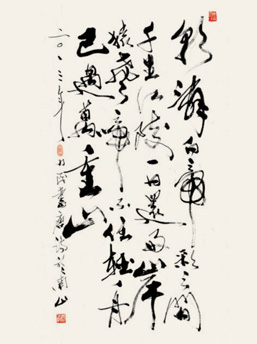 朝辭白帝彩雲間
千里江陵一日還兩岸
猿聲啼不住輕舟
已過萬重山
二〇一三年書唐詩於南山